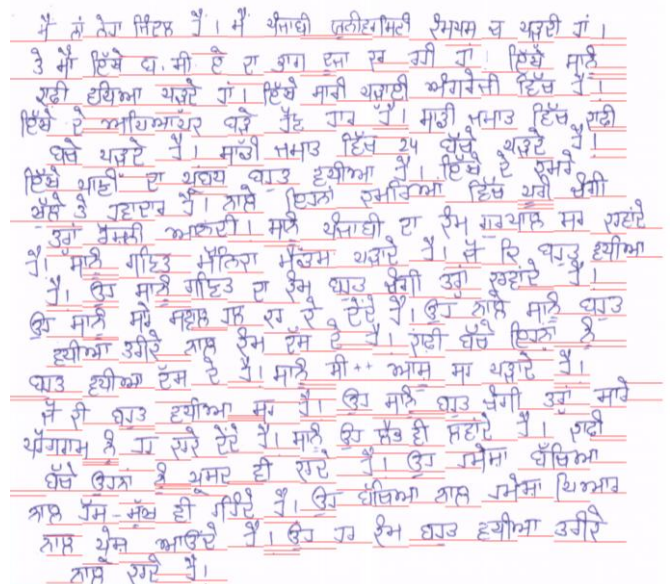 ਮੈ ਨਾਂ ਨੇਹਾ ਜਿੰਦਲ ਹੈ। ਮੈਂ ਪੰਜਾਬੀ ਯੂਨੀਵਰਸਿਟੀ ਕੈਮਪਸ ਚ ਪੜਦੀ ਹਾਂ।
ਤੇ ਮੈਂ ਇੱਥੇ ਬੀ.ਸੀ ਏ ਦਾ ਭਾਗ ਦੂਜਾ ਕਰ ਰਹੀ ਹਾਂ। ਇੱਥੇ ਸਾਨੂੰ
ਕਾਫੀ ਵਧਿਆ ਪੜਾਦੇ ਹਾਂ। ਇੱਥੇ ਸਾਰੀ ਪੜਾਈ ਅੰਗਰੇਜੀ ਵਿੱਚ ਹੈ।
ਇੱਥੇ ਦੇ ਅਧਿਆਪਕ ਬੜੇ ਹਨ। ਸਾਡੀ ਜਮਾਤ ਵਿੱਚ ਕਾਫੀ
ਬਚੇ ਪੜਦੇ ਹੈ। ਸਾਡੀ ਜਮਾਤ ਵਿੱਚ 24 ਬੱਚੇ ਪੜਦੇ ਹੈ।
ਇੱਥੇ ਪਾਣੀ ਦਾ ਪ੍ਰਬੰਧ ਬਹੁਤ ਵਧੀਆ ਹੈ। ਇੱਥੇ ਦੇ ਕਮਰੇ
ਖੁੱਲੇ ਤੇ ਹਵਾਦਾਰ ਹੈ। ਨਾਲੇ ਇਹਨਾਂ ਕਮਰਿਆ ਵਿੱਚ ਪੂਰੀ ਚੰਗੀ
ਤਰਾਂ ਰੋਸ਼ਨੀ ਆਉਂਦੀ। ਸਾਨੂੰ ਪੰਜਾਬੀ ਦਾ ਕੰਮ ਗੁਰਪਾਲ ਸਰ ਕਰਾਂਦੇ
ਹੈ। ਸਾਨੂੰ ਗਣਿਤ ਮੋਨਿਕਾ ਮੈਡਮ ਪੜਾਂਦੇ ਹੈ। ਜੋ ਕਿ ਬਹੁਤ ਵਧੀਆ
ਹੈ। ਉਹ ਸਾਨੂੰ ਗਣਿਤ ਦਾ ਕੰਮ ਬਹੁਤ ਚੰਗੀ ਤਰਾਂ ਕਰਵਾਂਦੇ ਹੈ।
ਉਹ ਸਾਨੂੰ ਸਾਰੇ ਸਵਾਲ ਹਲ ਕਰ ਕੇ ਦੇਂਦੇ ਹੈ। ਉਹ ਨਾਲੇ ਸਾਨੂੰ ਬਹੁਤ
ਵਧੀਆ ਤਰੀਕੇ ਨਾਲ ਕੰਮ ਦੱਸ ਦੇ ਹੈ। ਕਾਫੀ ਬੱਚੇ ਇਹਨਾਂ ਨੂੰ
ਬਹੁਤ ਵਧੀਆ ਦੱਸ ਦੇ ਹੈ। ਸਾਨੂੰ ਸੀ++ ਆਸੂ ਸਰ ਪੜਾਂਦੇ ਹੈ।
ਜੋ ਕੀ ਬਹੁਤ ਵਧੀਆ ਸਰ ਹੈ। ਉਹ ਸਾਨੂੰ ਬਹੁਤ ਚੰਗੀ ਤਰਾਂ ਸਾਰੇ
ਪਰੋਗਰਾਮ ਨੂੰ ਹਲ ਕਰਕੇ ਦੇਂਦੇ ਹੈ। ਸਾਨੂੰ ਉਹ ਲੈਬ ਵੀ ਲਵਾਂਦੇ ਹੈ। ਕਾਫੀ
ਬੱਚੇ ਉਹਨਾਂ ਨੂੰ ਪਸੰਦ ਵੀ ਕਰਦੇ ਹੈ। ਉਹ ਹਮੇਸਾ ਬੱਚਿਆ
ਨਾਲ ਹੱਸ-ਮੁੱਖ ਵੀ ਰਹਿੰਦੇ ਹੈ। ਉਹ ਬੱਚਿਆ ਨਾਲ ਹਮੇਸਾ ਪਿਆਰ
ਨਾਲ ਪੇਸ਼ ਆਉਂਦੇ ਹੈ। ਉਹ ਹਰ ਕੰਮ ਬਹੁਤ ਵਧੀਆ ਤਰੀਕੇ
ਨਾਲ ਕਰਦੇ ਹੈ।